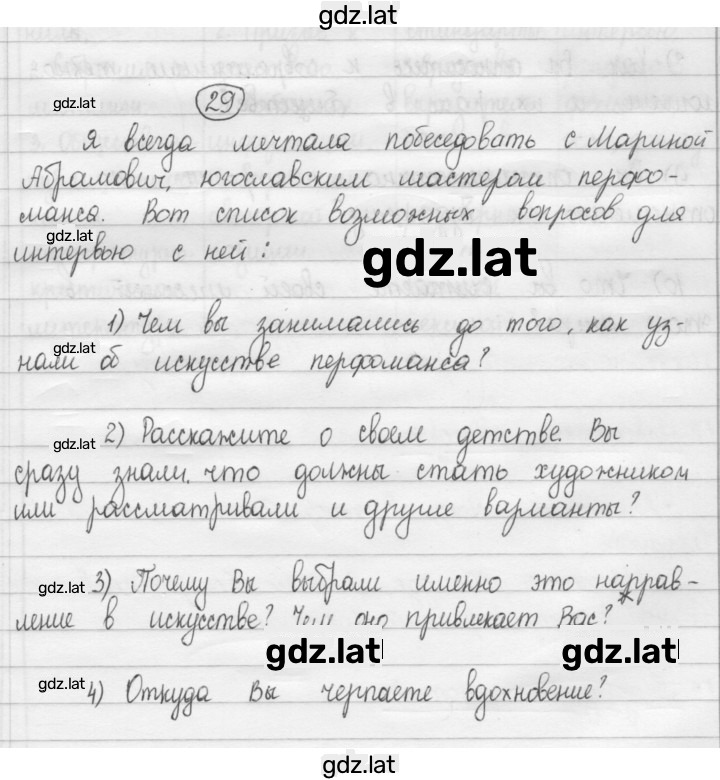 gdz.lat
gdz.lat
29
Я всегда мечтала побеседовать с Мариной
Абрамович, югославским мастером перфо-
gdz.lat
манса. Вот список возможных вопросов для
gdz.lat
интервью с ней:
gdz.lat
1) Чем вы занимались до того, как уз-
gdz.lat
нали об искусстве перфоманса?
gdz.lat
2) Расскажите о своем детстве. Вы
сразу знали, что должны стать художником
или рассматривали и другие варианты?
gdz.lat
3) Почему Вы выбрали именно это направ-
ление в искусстве? Чем оно привлекает Вас?
gdz.lat
gdz.lat
gdz.lat
4) Откуда Вы черпаете вдохновение?
gdz.lat